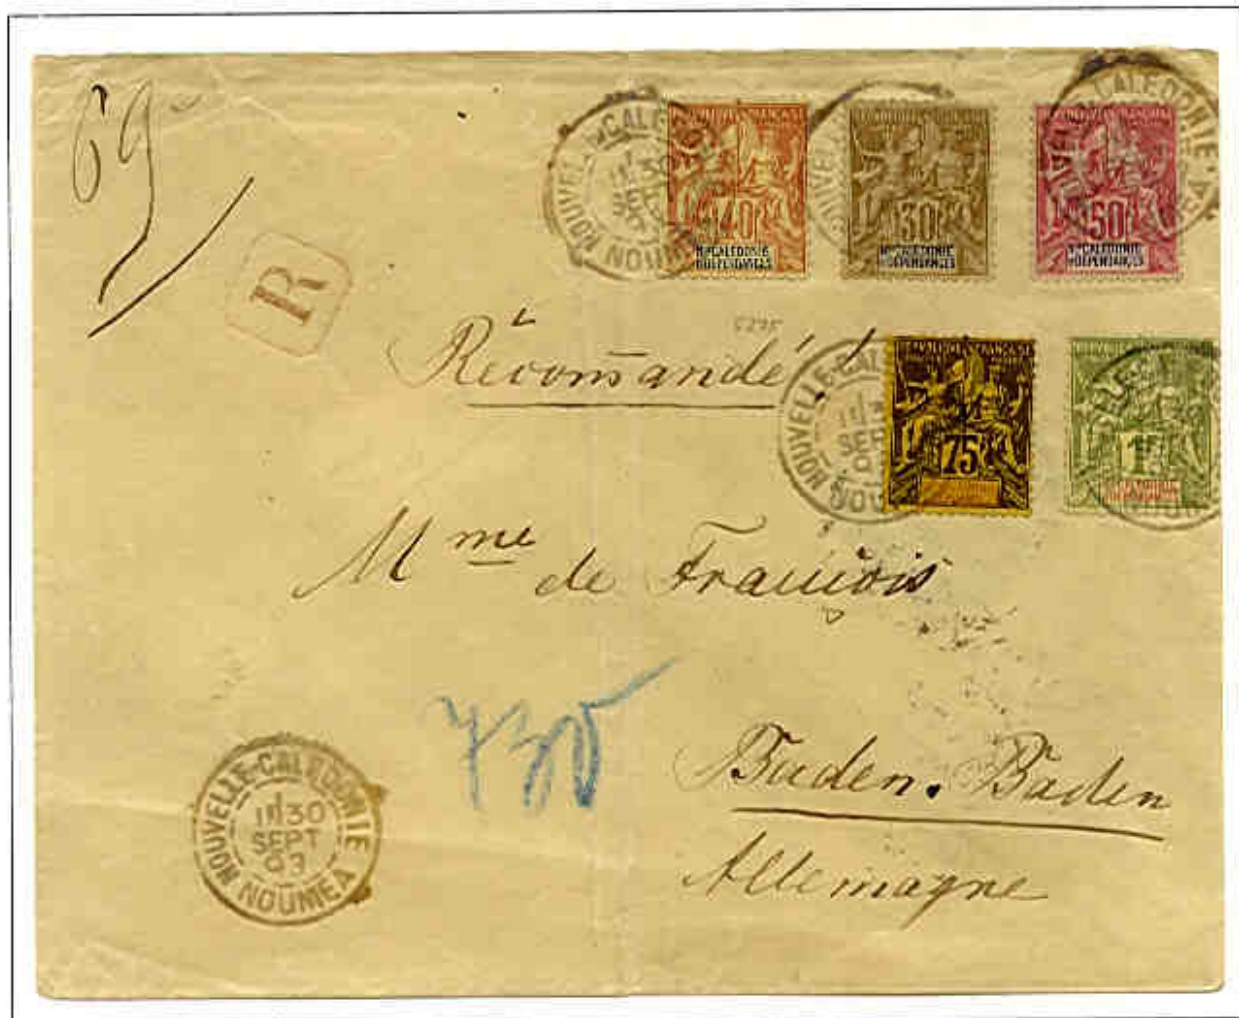 69
R
NOUVELLE-CALEDONIE
30
SEPT
NOUMEA
40
Nlle CALÉDONIE
ET DÉPENDANCES
30
Nlle CALÉDONIE
ET DÉPENDANCES
50
Nlle CALÉDONIE
ET DÉPENDANCES
Recommandé
NOUVELLE-CAL
SEP
75
1F
Mme de François
730
Baden-Baden
Allemagne
NOUVELLE-CALEDONIE
30
SEPT
03
NOUMEA